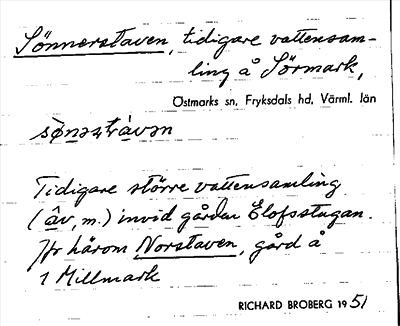 Sönnerstaven, tidigare vattensam-
ling å Sörmark,
Östmarks sn, Fryksdals hd, Värml. län
Tidigare större vattensamling
(âv, m.) invid gården Elofsstugan.
Jfr härom Norstaven, gård å
1 Millmark
RICHARD BROBERG 1951